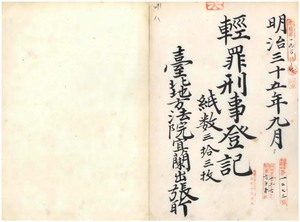 明治三十五年九月
輕罪刑事登記
紙数三拾三枚
臺北地方法院宜蘭出張所